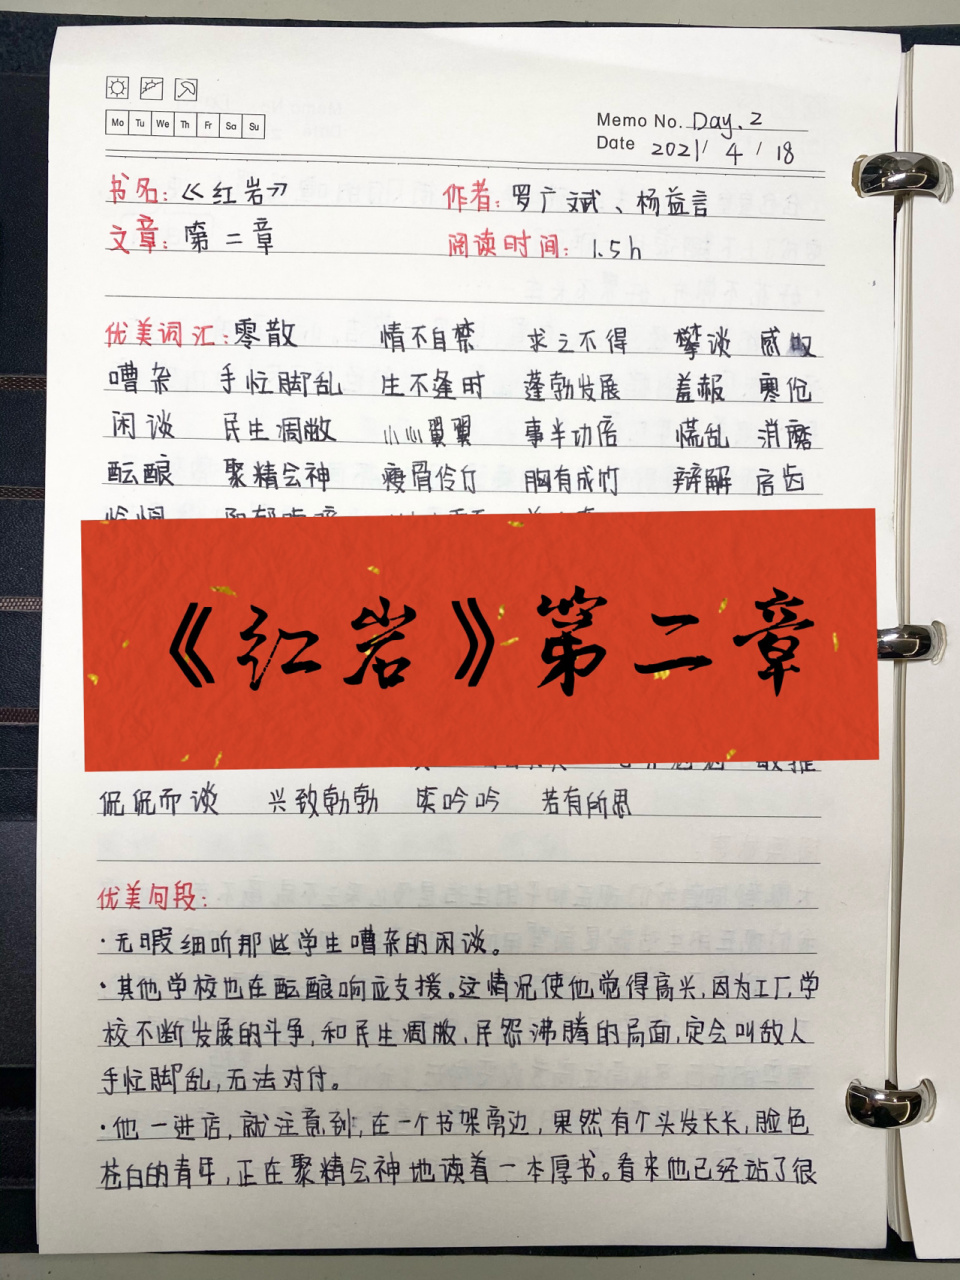 Mo Tu We Th Fr Sa Su
Memo No. Day. 2
Date 2021/ 4 / 18
书名:《红岩》 作者: 罗广斌、杨益言
文章: 第二章 阅读时间: 1.5h
优美词汇: 零散 情不自禁 求之不得 攀谈 感
嘈杂 手忙脚乱 生不逢时 蓬勃发展 盖赧 寒伧
闲谈 民生凋敝 小心翼翼 事半功倍 慌乱 消磨
酝酿 聚精会神 瘦骨伶仃 胸有成竹 辩解 启齿
《红岩》第二章
侃侃而谈 兴致勃勃 笑吟吟 若有所思
优美句段:
·无暇细听那些学生嘈杂的闲谈。
·其他学校也在酝酿响应支援。这情况使他觉得高兴,因为工厂、学
校不断发展的斗争,和民生凋敝、民怨沸腾的局面,定会叫敌人
手忙脚乱,无法对付。
·他一进店,就注意到,在一个书架旁边,果然有个头发长长,脸色
苍白的青年,正在聚精会神地读着一本厚书。看来他已经站了很